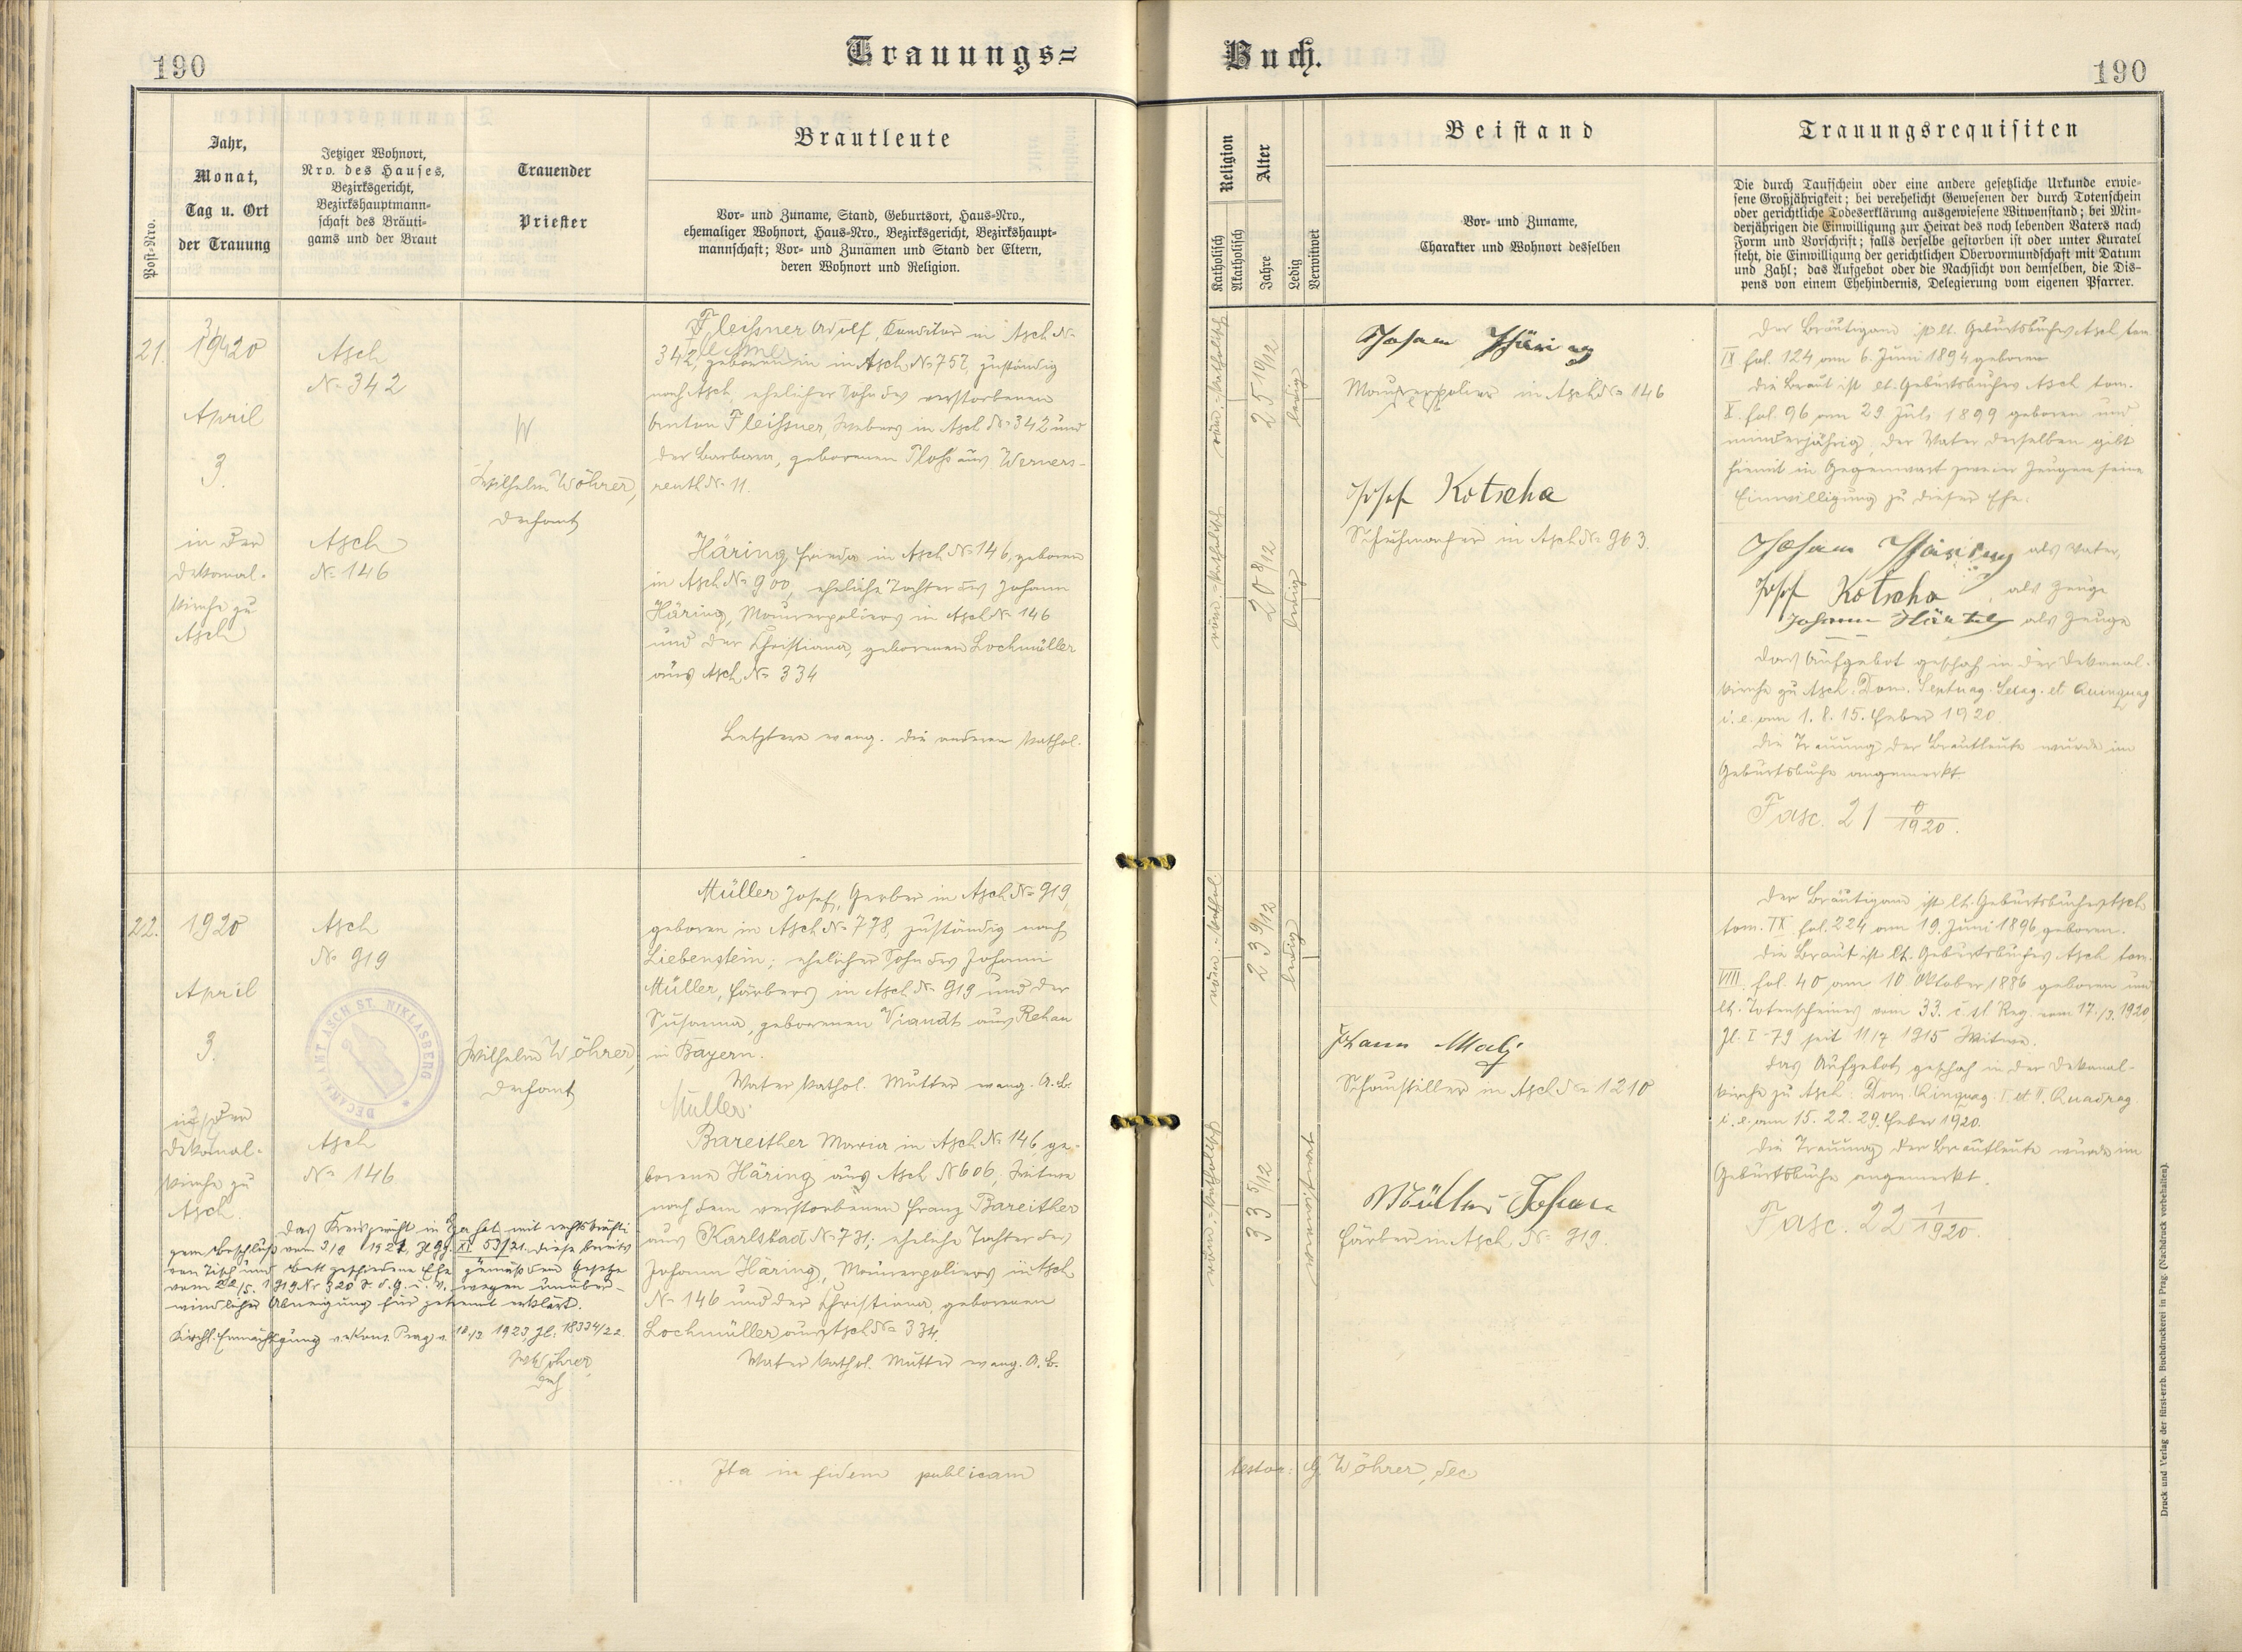 190
Trauungs=
Buch.
190
Post-Nro.
Jahr,
Monat,
Tag u. Ort
der Trauung
Jetziger Wohnort,
Nro. des Hauses,
Bezirksgericht,
Bezirkshauptmann-
schaft des Bräuti-
gams und der Braut
Trauender
Priester
Brautleute
Vor- und Zuname, Stand, Geburtsort, Haus-Nro.,
ehemaliger Wohnort, Haus-Nro., Bezirksgericht, Bezirkshaupt-
mannschaft; Vor- und Zunamen und Stand der Eltern,
deren Wohnort und Religion.
Religion
Katholisch
Akatholisch
Alter
Jahre
Ledig
Verwitwet
Beistand
Vor- und Zuname,
Charakter und Wohnort desselben
Trauungsrequisiten
Die durch Taufschein oder eine andere gesetzliche Urkunde erwie-
sene Großjährigkeit; bei verehelicht Gewesenen der durch Totenschein
oder gerichtliche Todeserklärung ausgewiesene Witwenstand; bei Min-
derjährigen die Einwilligung zur Heirat des noch lebenden Vaters nach
Form und Vorschrift; falls derselbe gestorben ist oder unter Kuratel
steht, die Einwilligung der gerichtlichen Obervormundschaft mit Datum
und Zahl; das Aufgebot oder die Nachsicht von demselben, die Dis-
pens von einem Ehehindernis, Delegierung vom eigenen Pfarrer.
21.
1920
April
3.
in der
Dekanal-
kirche zu
Asch
Asch
No 342
Asch
No 146
Wilhelm Wöhrer,
Dechant
Fleissner Adolf, Konditor in Asch No
342, geboren in Asch No 757, zuständig
nach Asch, ehelicher Sohn des verstorbenen
Anton Fleissner, Webers in Asch No 342 und
der Barbara, geborenen Ploß aus Werners-
reuth No 11.
Häring Frieda in Asch No 146, geboren
in Asch No 900, eheliche Tochter des Johann
Häring, Maurerpoliers in Asch No 146
und der Christiana, geborenen Lochmüller
aus Asch No 334
Letztere evang. die anderen kathol.
röm.-katholisch
25 10/12
ledig
röm.-katholisch
20 8/12
ledig
Johann Häring
Maurerpolier in Asch No 146
Josef Kotscha
Schuhmacher in Asch No 963.
Der Bräutigam ist lt. Geburtsbuches Asch tom.
IX fol. 124 am 6. Juni 1894 geboren
Die Braut ist lt. Geburtsbuches Asch tom.
X. fol. 96 am 29 Juli 1899 geboren und
minderjährig, der Vater derselben gibt
hiemit in Gegenwart zweier Zeugen seine
Einwilligung zu dieser Ehe:
Johann Häring als Vater,
Josef Kotscha, als Zeuge
Johann Härtel als Zeuge
Das Aufgebot geschah in der Dekanal-
kirche zu Asch: Dom. Septuag. Sexag. et Quinquag
i. e. am 1. 8. 15. Feber 1920.
Die Trauung der Brautleute wurde im
Geburtsbuche angemerkt
Fasc. 21 0/1920.
22.
1920
April
3.
in der
Dekanal-
kirche zu
Asch.
Asch
No 919
DECANALAMT ASCH ST. NIKLASBERG
Asch
No 146
Wilhelm Wöhrer,
Dechant
Müller Josef, Gerber in Asch No 919,
geboren in Asch No 778, zuständig nach
Liebenstein; ehelicher Sohn des Johann
Müller, Färbers in Asch No 919 und der
Susanna, geborenen Viandt aus Rehau
in Bayern.
Vater kathol. Mutter evang. A. B.
Müller
Bareither Maria in Asch No 146, ge-
borene Häring aus Asch No 606, Witwe
nach dem verstorbenen Franz Bareither
aus Karlsbad No 731; eheliche Tochter des
Johann Häring, Maurerpoliers in Asch
No 146 und der Christiana, geborenen
Lochmüller aus Asch No 334.
Vater kathol. Mutter evang. A. B.
Das Kreisgericht in Eger hat mit rechtskräfti-
gem Beschluß vom
von Tisch und Bett geschiedene Ehe gemäß dem Gesetze
vom 22/5. 1919 Nr 320 S. d. G. u. V. wegen unüber-
windlicher Abneigung für getrennt erklärt.
Kirchl. Ermächtigung v. Kons. Prag v. 1923 Zl: 18334/22.
Wöhrer
Dech
röm.-kathol.
23 9/12
ledig
röm.-katholisch
33 5/12
verwitwet
Schausteller in Asch No 1210
Müller Johann
Färber in Asch No 919.
Der Bräutigam ist lt. Geburtsbuches Asch
tom. IX fol. 224 am 19. Juni 1896 geboren.
Die Braut ist lt. Geburtsbuches Asch tom.
VIII. fol. 40 am 10 Oktober 1886 geboren und
lt. Totenscheines vom 33. Reg. vom 17./3. 1920
Zl. I-79 seit 11/7 1915 Witwe.
Das Aufgebot geschah in der Dekanal-
kirche zu Asch: Dom. Qinquag. I. et II. Quadrag.
i. e. am 15. 22. 29. Feber 1920.
Die Trauung der Brautleute wurde im
Geburtsbuche angemerkt.
Fasc. 22 1/1920.
Ita in fidem publicam
testor: G. Wöhrer, dec.
Druck und Verlag der fürst-erzb. Buchdruckerei in Prag. (Nachdruck vorbehalten).